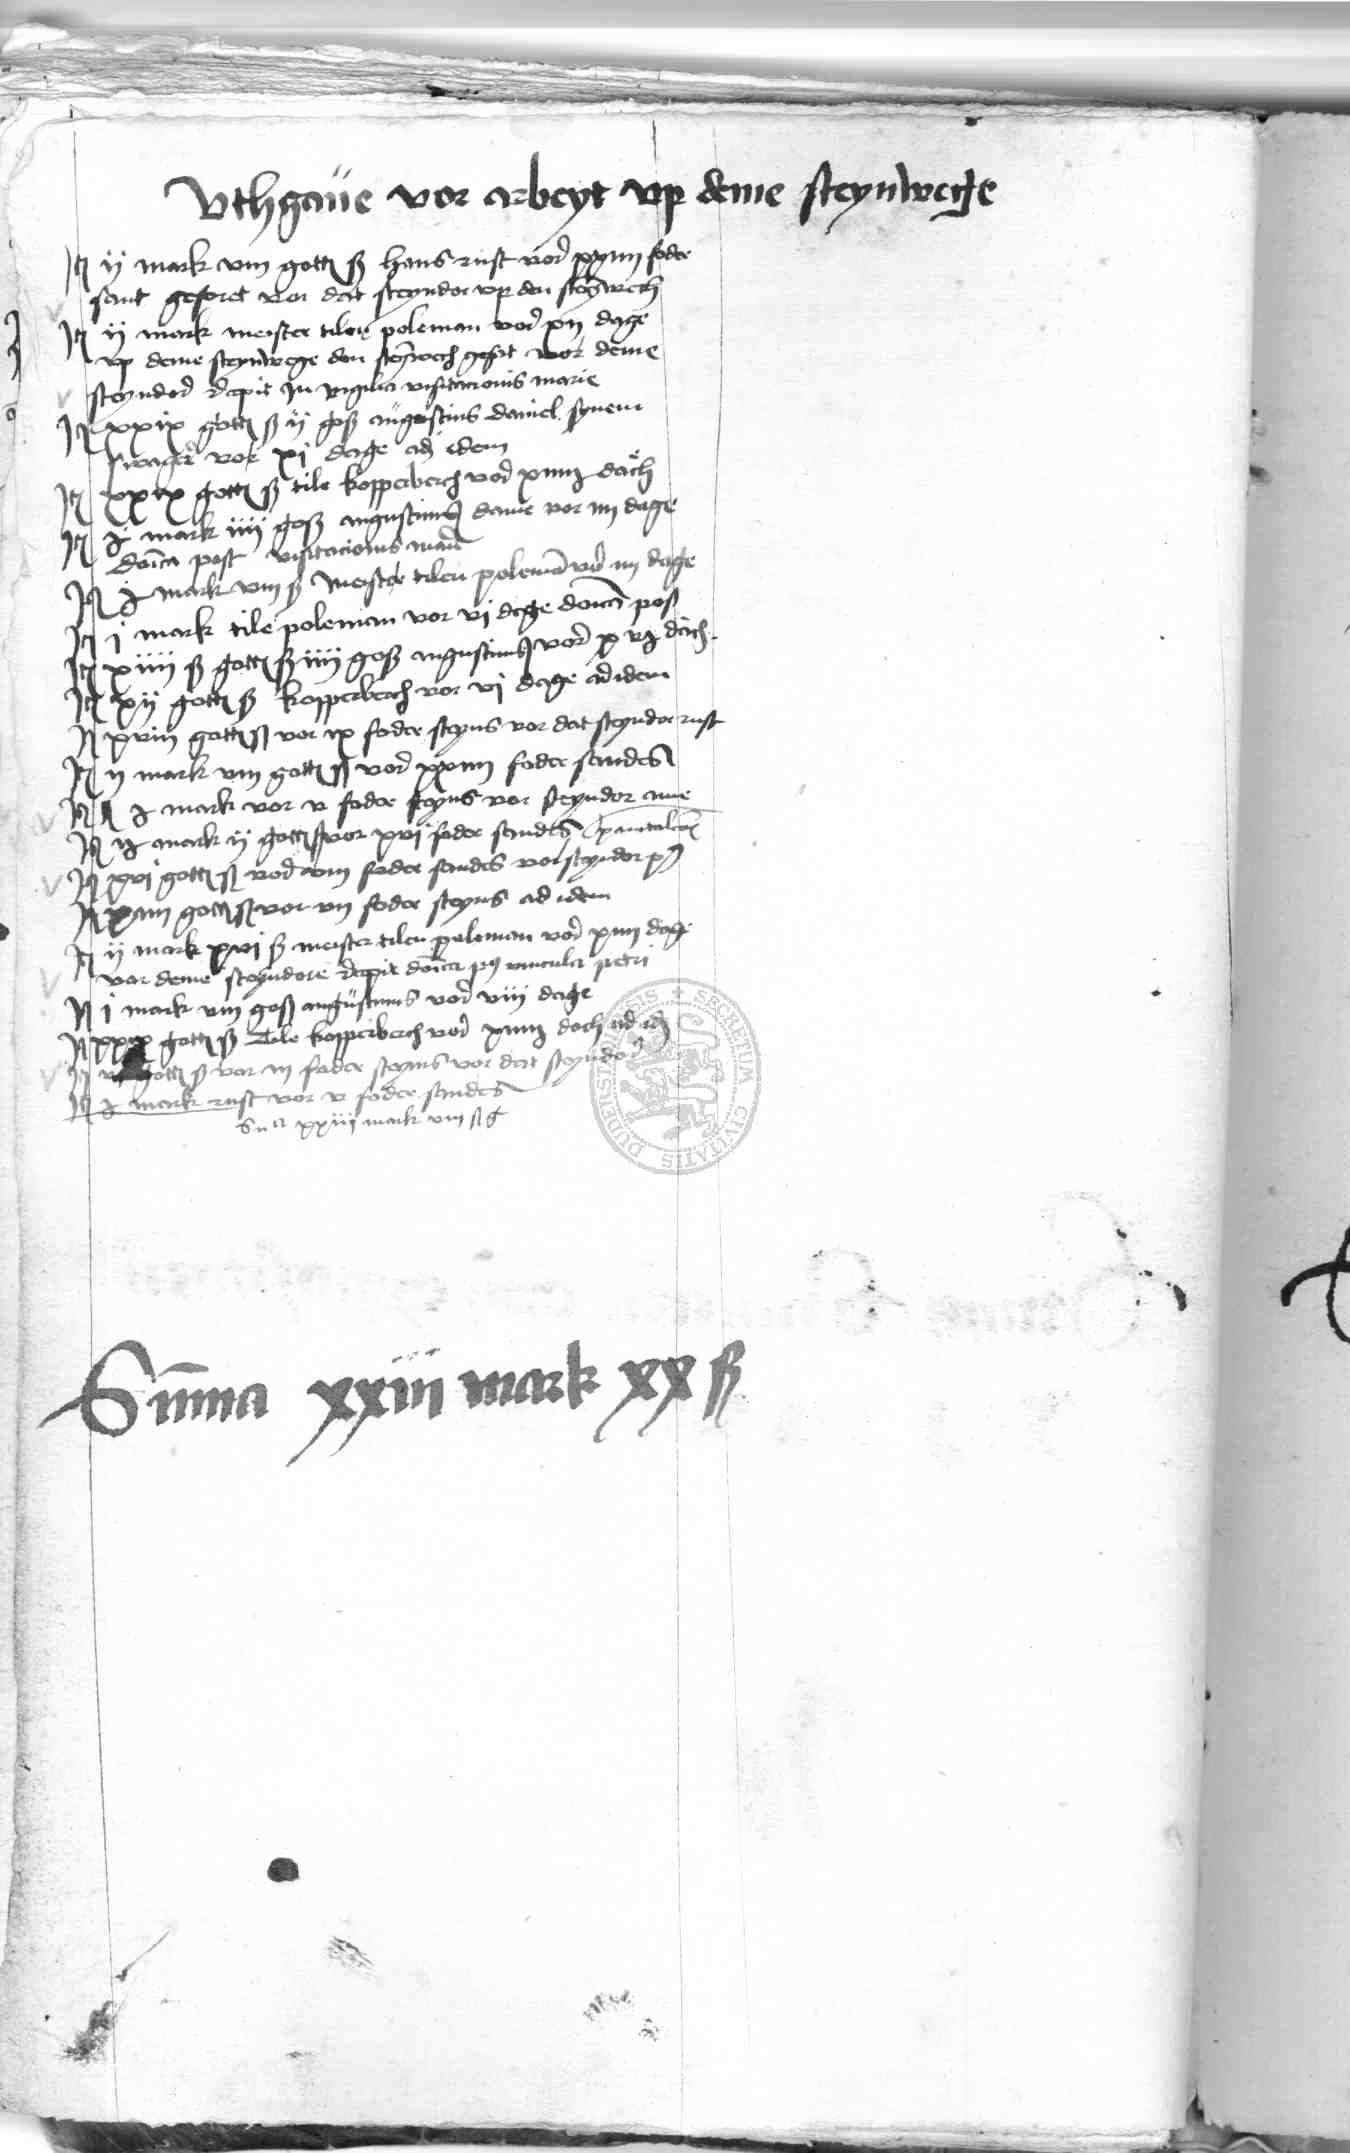 Vthgaue vor arbeyt vp deme steynwege
It ij mark viii gott ß hans rust vor xxiiii foder
sant geforet vor dat steyndor vp den steynwech
It ij mark meister tilen poleman vor xii dage
vp deme steynwege den steynwech gesat vor deme
steyndor recepit in vigilia visitacionis marie
It xxix gott ß ij gosß augustinus daniel synem
swager vor xi dage ad idem
It xxix gott ß tile kopperberch vor xiiii dach
It j mark iiii gosß augustinus dame vor iiii dage
domca post visitacionis marie
It j mark viii ß meister tilen poleman vor iii dage
It i mark tile poleman vor vi dage domca post
It xiiii ß gott ß iiii gosß augustinus vor x dach
It xij gott ß kopperberch vor vi dage ad idem
It xviii gott ß vor ix foder steyns vor dat steyndor rust
It ii mark viii gott ß vor xxiiii foder sandes
It j mark vor v foder steyns vor steyndor
It mark ij gott ß vor xvi foder sandes pantaleo
It xvi gott ß vor viii foder sandes vor steyndor
It xiiii gott ß vor vii foder steyns ad idem
It ij mark xvi ß meister tilen poleman vor xiiii dage
vor deme steyndore recepit domca p9 vincula petri
It i mark viii gosß augustinus vor viii dage
It xxix gott ß Tile kopperberch vor xiiii dach ad id
It gott ß vor iii foder steyns vor dat steyndor
It j mark rust vor v foder sandes
Sua xxiii mark viii ß
Suma xxiii mark xx ß
SECRETUM CIVITATIS DUDERSTADENSIS